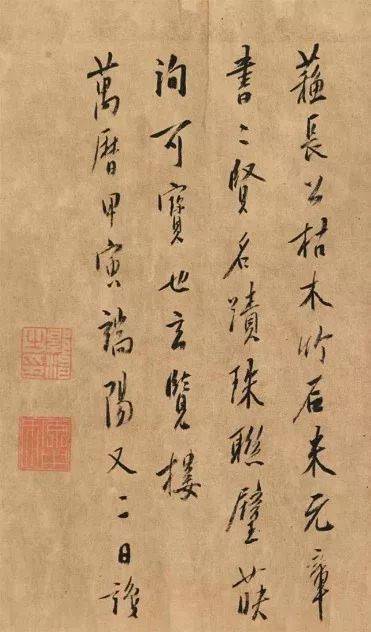 蘓長公枯木竹石米元章
書二賢名蹟珠聯璧映
洵可寶也玄覽樓
萬曆甲寅端陽又二日識